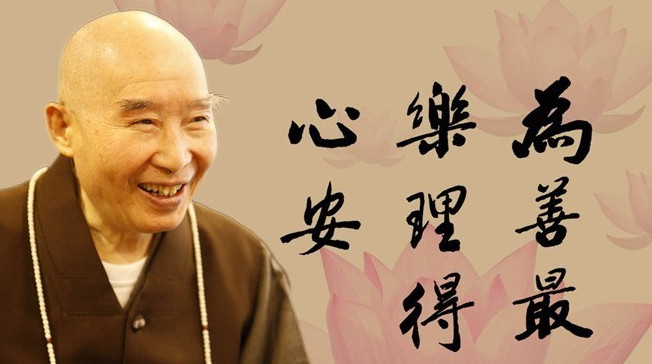 為善最
樂理得
心安